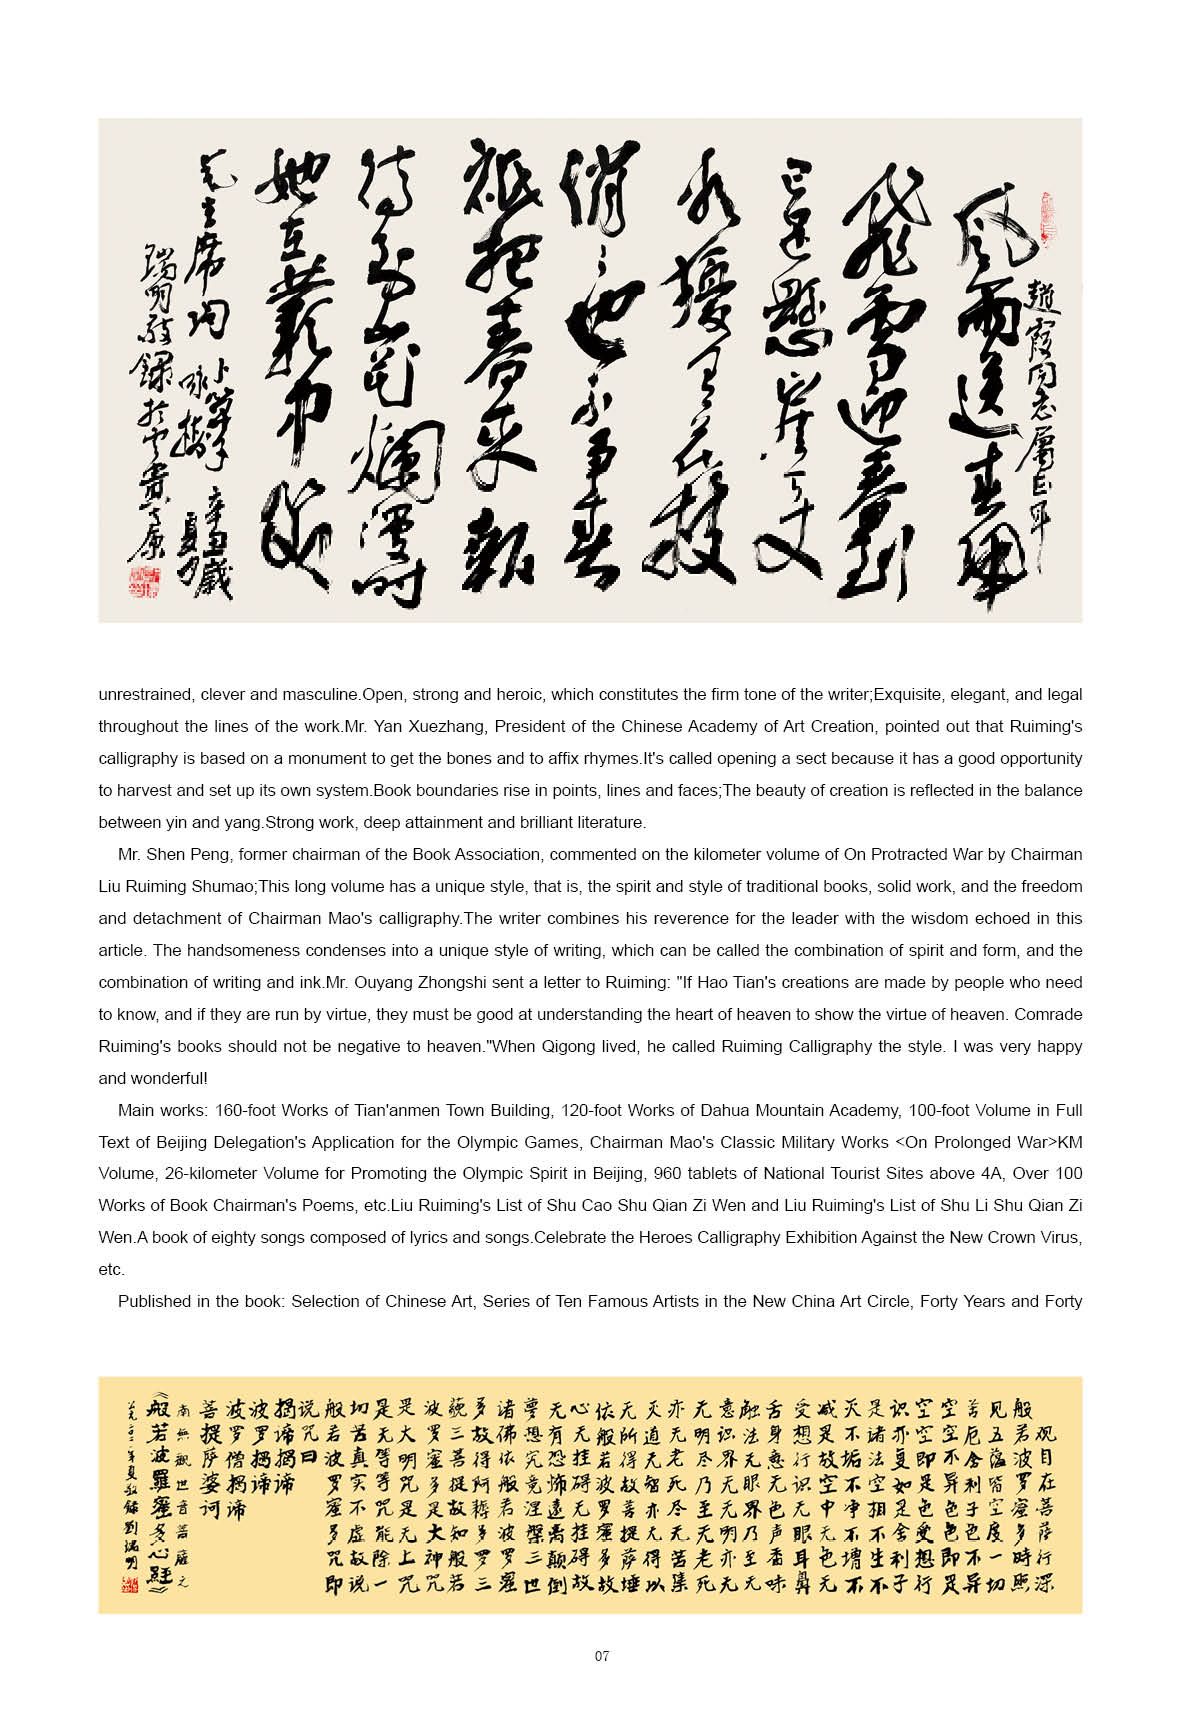 趙霞同志屬正
風雨送春歸
飛雪迎春到
已是懸崖百丈
冰猶有花枝
俏俏也不爭春
祇把春来報
待到山花爛漫时
她在叢中笑
毛主席词
卜算子
咏梅
辛丑歲
夏月
瑞明敬録於云貴高原
unrestrained, clever and masculine.Open, strong and heroic, which constitutes the firm tone of the writer;Exquisite, elegant, and legal
throughout the lines of the work.Mr. Yan Xuezhang, President of the Chinese Academy of Art Creation, pointed out that Ruiming's
calligraphy is based on a monument to get the bones and to affix rhymes.It's called opening a sect because it has a good opportunity
to harvest and set up its own system.Book boundaries rise in points, lines and faces;The beauty of creation is reflected in the balance
between yin and yang.Strong work, deep attainment and brilliant literature.
Mr. Shen Peng, former chairman of the Book Association, commented on the kilometer volume of On Protracted War by Chairman
Liu Ruiming Shumao;This long volume has a unique style, that is, the spirit and style of traditional books, solid work, and the freedom
and detachment of Chairman Mao's calligraphy.The writer combines his reverence for the leader with the wisdom echoed in this
article. The handsomeness condenses into a unique style of writing, which can be called the combination of spirit and form, and the
combination of writing and ink.Mr. Ouyang Zhongshi sent a letter to Ruiming: "If Hao Tian's creations are made by people who need
to know, and if they are run by virtue, they must be good at understanding the heart of heaven to show the virtue of heaven. Comrade
Ruiming's books should not be negative to heaven."When Qigong lived, he called Ruiming Calligraphy the style. I was very happy
and wonderful!
Main works: 160-foot Works of Tian'anmen Town Building, 120-foot Works of Dahua Mountain Academy, 100-foot Volume in Full
Text of Beijing Delegation's Application for the Olympic Games, Chairman Mao's Classic Military Works <On Prolonged War>KM
Volume, 26-kilometer Volume for Promoting the Olympic Spirit in Beijing, 960 tablets of National Tourist Sites above 4A, Over 100
Works of Book Chairman's Poems, etc.Liu Ruiming's List of Shu Cao Shu Qian Zi Wen and Liu Ruiming's List of Shu Li Shu Qian Zi
Wen.A book of eighty songs composed of lyrics and songs.Celebrate the Heroes Calligraphy Exhibition Against the New Crown Virus,
etc.
Published in the book: Selection of Chinese Art, Series of Ten Famous Artists in the New China Art Circle, Forty Years and Forty
观自在菩萨行深
般若波罗蜜多時照
见五蕴皆空度一切
苦厄舍利子色不异
空空不异色色即是
空空即是色受想行
识亦复如是舍利子
是诸法空相不生不
灭不垢不净不增不
减是故空中无色无
受想行识无眼耳鼻
舌身意无色声香味
触法无眼界乃至无
意识界无无明亦无
无明尽乃至无老死
亦无老死尽无苦集
灭道无智亦无得以
无所得故菩提萨埵
依般若波罗蜜多故
心无挂碍无挂碍故
无有恐怖远离颠倒
梦想究竟涅槃三世
诸佛依般若波罗蜜
多故得阿耨多罗三
藐三菩提故知般若
波罗蜜多是大神咒
是大明咒是无上咒
是无等等咒能除一
切苦真实不虚故说
般若波罗蜜多咒即
说咒曰
揭谛揭谛
波罗揭谛
波罗僧揭谛
菩提萨婆诃
南無觀世音菩薩之
《般若波羅蜜多心經》
年夏敬録劉瑞明
07